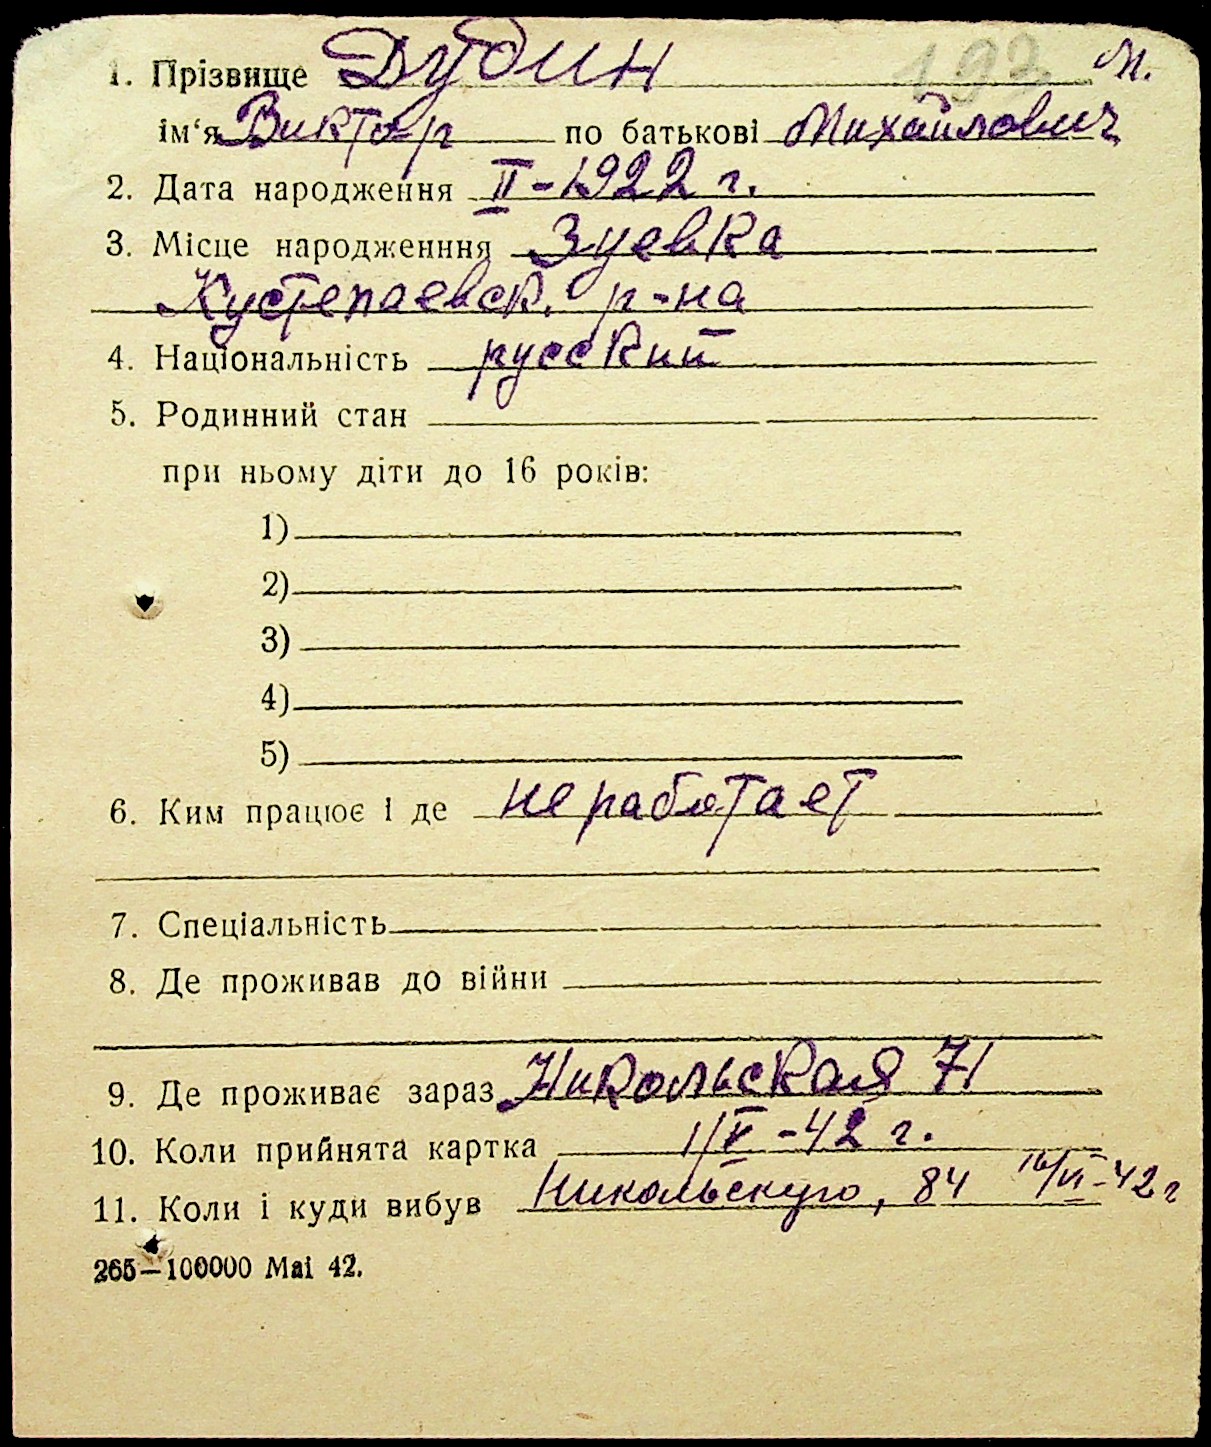 1. Прізвище Дудин 192 М.
ім'я Виктор по батькові Михайлович
2. Дата народження II-1922 г.
3. Місце народженння Зуевка
Кустепаевск. р-на
4. Національність русский
5. Родинний стан
при ньому діти до 16 років:
1)
2)
3)
4)
5)
6. Ким працює і де не работает
7. Спеціальність
8. Де проживав до війни
9. Де проживає зараз Никольская 71
10. Коли прийнята картка 1/V-42 г.
11. Коли і куди вибув Никольскую, 84 16/VI-42 г
265—100000 Mai 42.